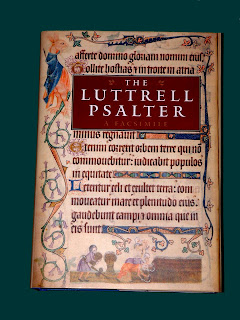 afferte domino gloriam nomini eius
Tollite hostias et introite in atria
THE
LUTTRELL
PSALTER
A FACSIMILE
minus regnauit
Etenim correxit orbem terre qui nō
commouebitur: iudicabit populos
in equitate
Letentur celi et exultet terra: com
moueatur mare et plenitudo eius
gaudebunt campi et omnia que in
eis sunt